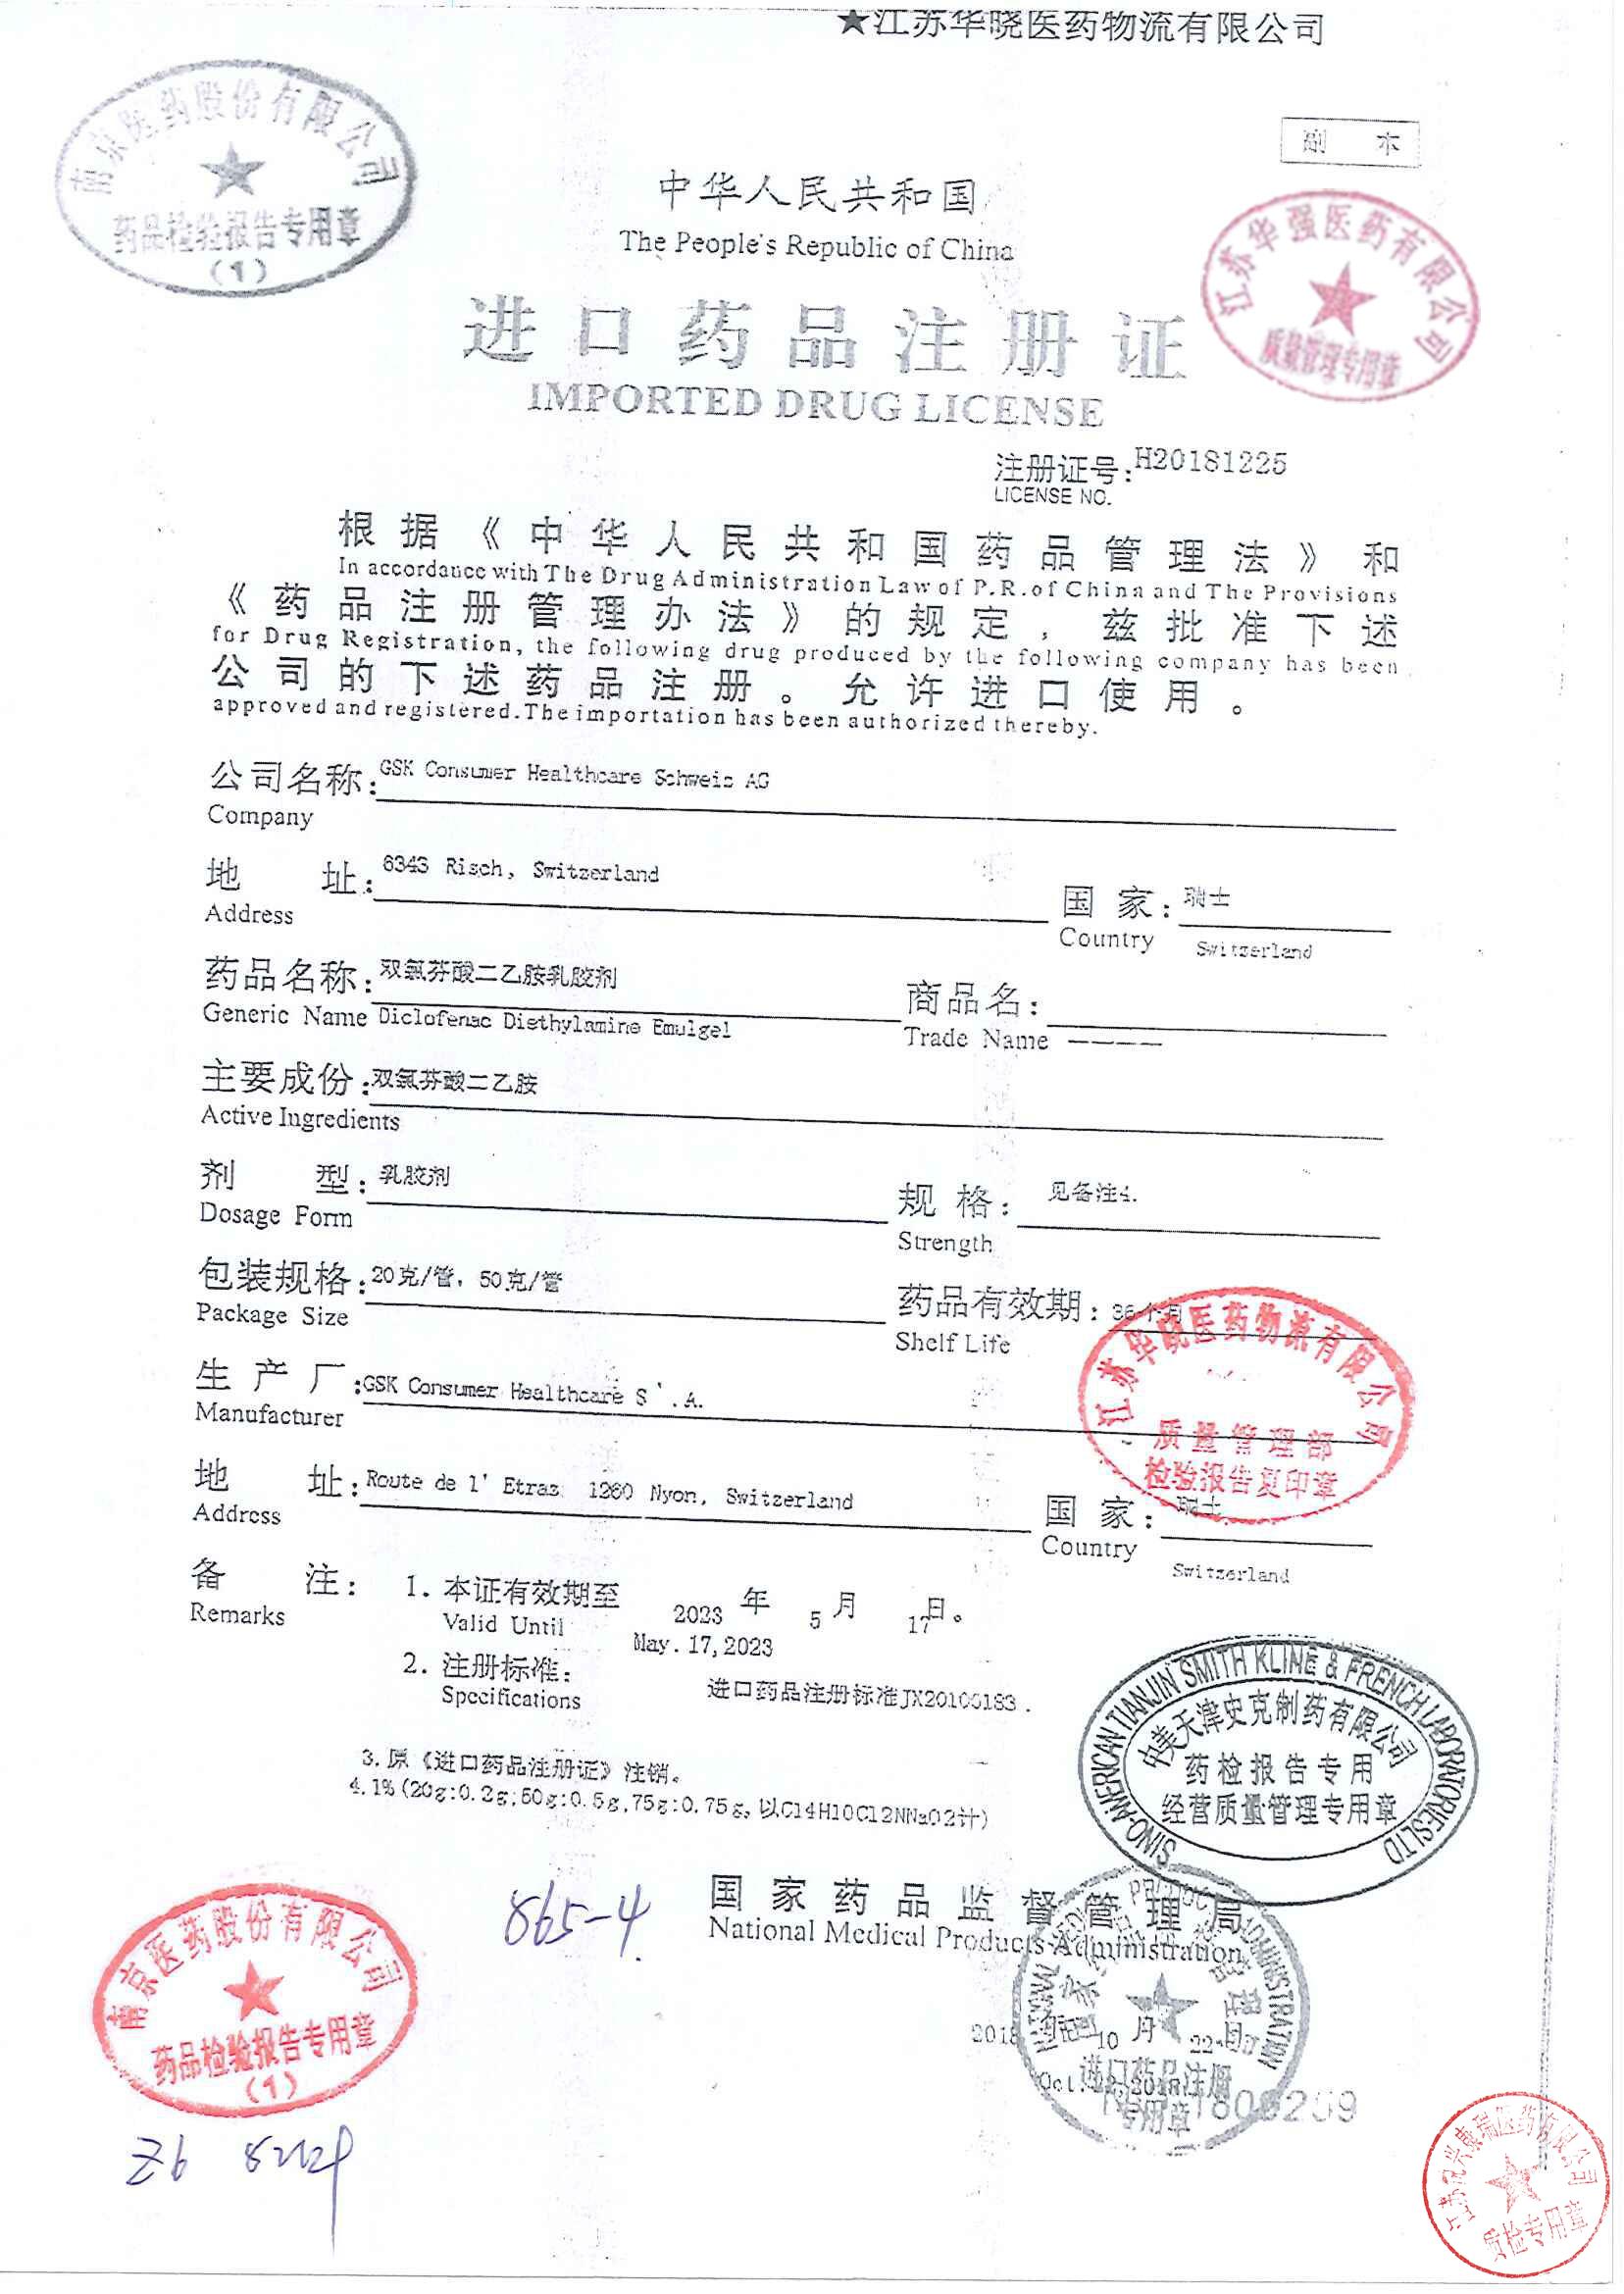 ★江苏华晓医药物流有限公司
南京医药股份有限公司
药品检验报告专用章
(1)
副 本
中华人民共和国
The People's Republic of China
江苏华强医药有限公司
质量管理专用章
进口药品注册证
IMPORTED DRUG LICENSE
注册证号:H20181225
LICENSE NO.
根据《中华人民共和国药品管理法》和
In accordance with The Drug Administration Law of P.R.of China and The Provisions
《药品注册管理办法》的规定,兹批准下述
for Drug Registration, the following drug produced by the following company has been
公司的下述药品注册。允许进口使用。
approved and registered.The importation has been authorized thereby.
公司名称:GSK Consumer Healthcare Schweiz AG
Company
地 址:6343 Risch, Switzerland 国家:瑞士
Address Country Switzerland
药品名称:双氯芬酸二乙胺乳胶剂 商品名:
Generic Name Diclofenac Diethylamine Emulgel Trade Name ————
主要成份:双氯芬酸二乙胺
Active Ingredients
剂 型:乳胶剂 规格:见备注4.
Dosage Form Strength
包装规格:20克/管, 50克/管 药品有效期:36个月
Package Size Shelf Life
江苏华晓医药物流有限公司
质量管理部
检验报告复印章
生产厂:GSK Consumer Healthcare S'.A.
Manufacturer
地 址:Route de l' Etraz 1260 Nyon, Switzerland 国家:瑞士
Address Country Switzerland
备 注: 1. 本证有效期至 2023 年 5 月 17日。
Remarks Valid Until May.17,2023
2. 注册标准: 进口药品注册标准JX20100183.
Specifications
3.原《进口药品注册证》注销。
4.1%(20g:0.2g;50g:0.5g,75g:0.75g,以C14H10Cl2NNaO2计)
SINO-AMERICAN TIANJIN SMITH KLINE & FRENCH LABORATORIES LTD
中美天津史克制药有限公司
药检报告专用
经营质量管理专用章
国家药品监督管理局
National Medical Products Administration
865-4.
2018 年 10 月 22 日
进口药品注册
专用章
南京医药股份有限公司
药品检验报告专用章
(1)
质检专用章